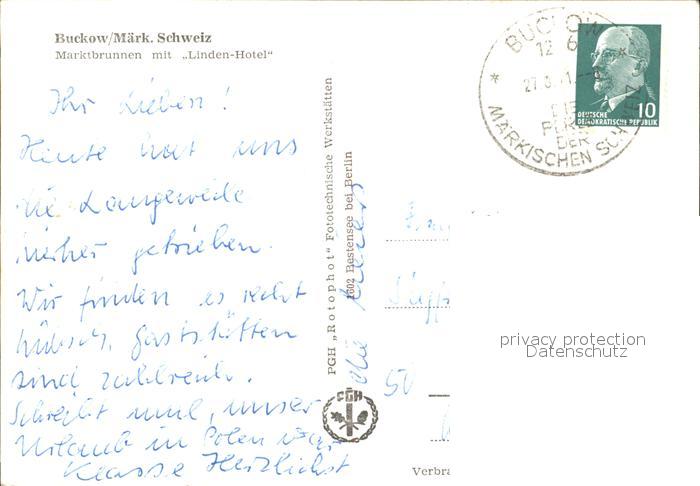 Buckow/Märk. Schweiz
Marktbrunnen mit „Linden-Hotel"
Ihr Lieben!
Heute hat uns
die Langeweile
hierher getrieben.
Wir finden es recht
hübsch, Gaststätten
sind zahlreich.
Schreibt mal, unser
Urlaub in Polen war
Klasse Herzlichst
PGH „Rotophot" Fototechnische Werkstätten
1602 Bestensee bei Berlin
PGH
BUCKOW
MÄRKISCHEN SCHWEIZ
DIE
PERLE
DER
DEUTSCHE
DEMOKRATISCHE REPUBLIK
10
50
privacy protection
Datenschutz
Verbra